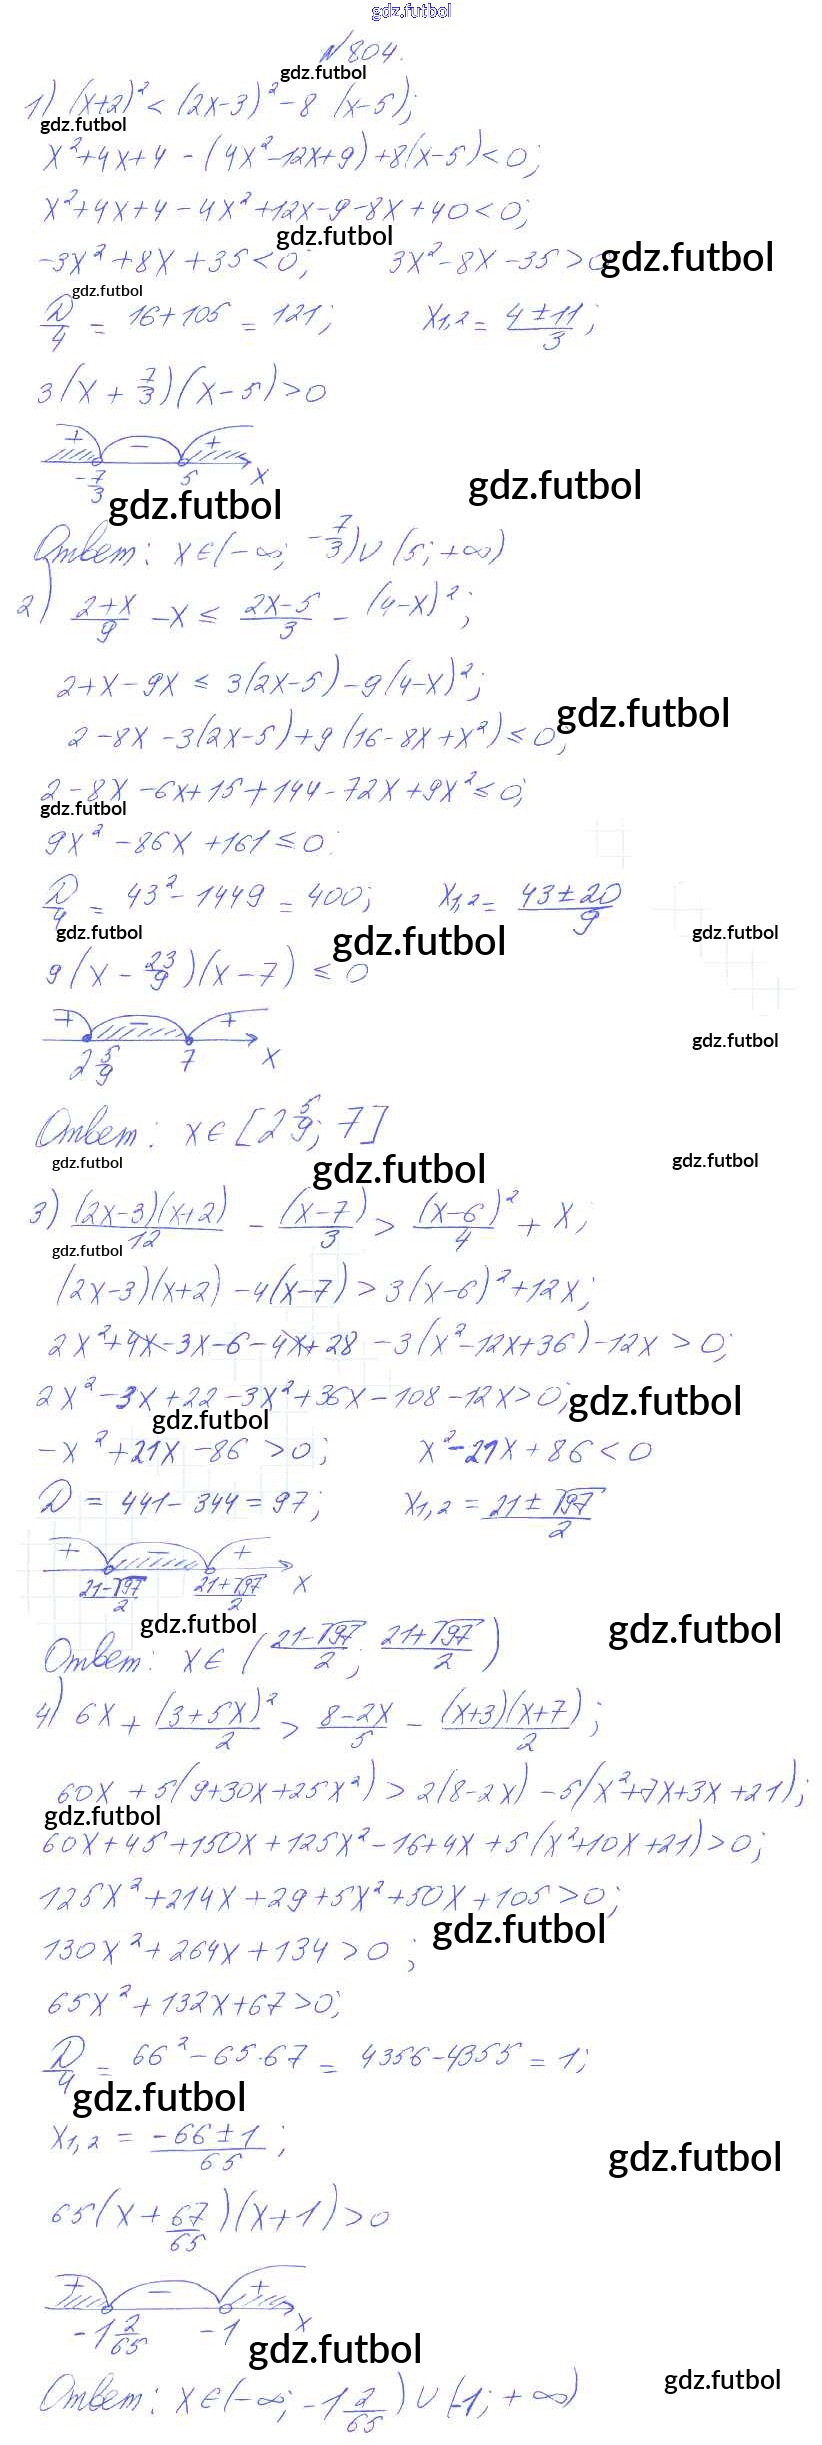 gdz.futbol
№ 804.
gdz.futbol
1) (x+2)² < (2x-3)² - 8 (x-5);
gdz.futbol
x²+4x+4 - (4x²-12x+9) + 8(x-5) < 0;
x²+4x+4 - 4x²+12x-9-8x+40 < 0;
gdz.futbol
-3x²+8x+35 < 0; 3x²-8x-35 > 0
gdz.futbol
gdz.futbol
D/4 = 16+105 = 121; x1,2 = (4±11)/3;
3(x + 7/3)(x-5) > 0
+ - +
-7/3 5 x
gdz.futbol
gdz.futbol
Ответ: x∈(-∞; -7/3)∪(5; +∞)
2) (2+x)/9 - x ≤ (2x-5)/3 - (4-x)²;
2+x-9x ≤ 3(2x-5) - 9(4-x)²;
gdz.futbol
2-8x-3(2x-5)+9(16-8x+x²) ≤ 0;
2-8x-6x+15+144-72x+9x² ≤ 0;
gdz.futbol
9x²-86x+161 ≤ 0;
D/4 = 43²-1449 = 400; x1,2 = (43±20)/9
gdz.futbol
gdz.futbol
gdz.futbol
9(x - 23/9)(x-7) ≤ 0
+ - +
gdz.futbol
2 5/9 7 x
Ответ: x∈[2 5/9; 7]
gdz.futbol
gdz.futbol
gdz.futbol
3) (2x-3)(x+2)/12 - (x-7)/3 > (x-6)²/4 + x;
gdz.futbol
(2x-3)(x+2) - 4(x-7) > 3(x-6)²+12x;
2x²+4x-3x-6-4x+28 - 3(x²-12x+36) - 12x > 0;
2x²-3x+22-3x²+36x-108-12x > 0;
gdz.futbol
gdz.futbol
-x²+21x-86 > 0; x²-21x+86 < 0
D = 441-344 = 97; x1,2 = (21±√97)/2
+ - +
(21-√97)/2 (21+√97)/2 x
gdz.futbol
gdz.futbol
Ответ: x∈((21-√97)/2; (21+√97)/2)
4) 6x + (3+5x)²/2 > (8-2x)/5 - (x+3)(x+7)/2;
60x + 5(9+30x+25x²) > 2(8-2x) - 5(x²+7x+3x+21);
gdz.futbol
60x+45+150x+125x²-16+4x+5(x²+10x+21) > 0;
125x²+214x+29+5x²+50x+105 > 0;
gdz.futbol
130x²+264x+134 > 0;
65x²+132x+67 > 0;
D/4 = 66²-65·67 = 4356-4355 = 1;
gdz.futbol
x1,2 = (-66±1)/65;
gdz.futbol
65(x + 67/65)(x+1) > 0
+ - +
-1 2/65 -1 x
gdz.futbol
gdz.futbol
Ответ: x∈(-∞; -1 2/65)∪(-1; +∞)